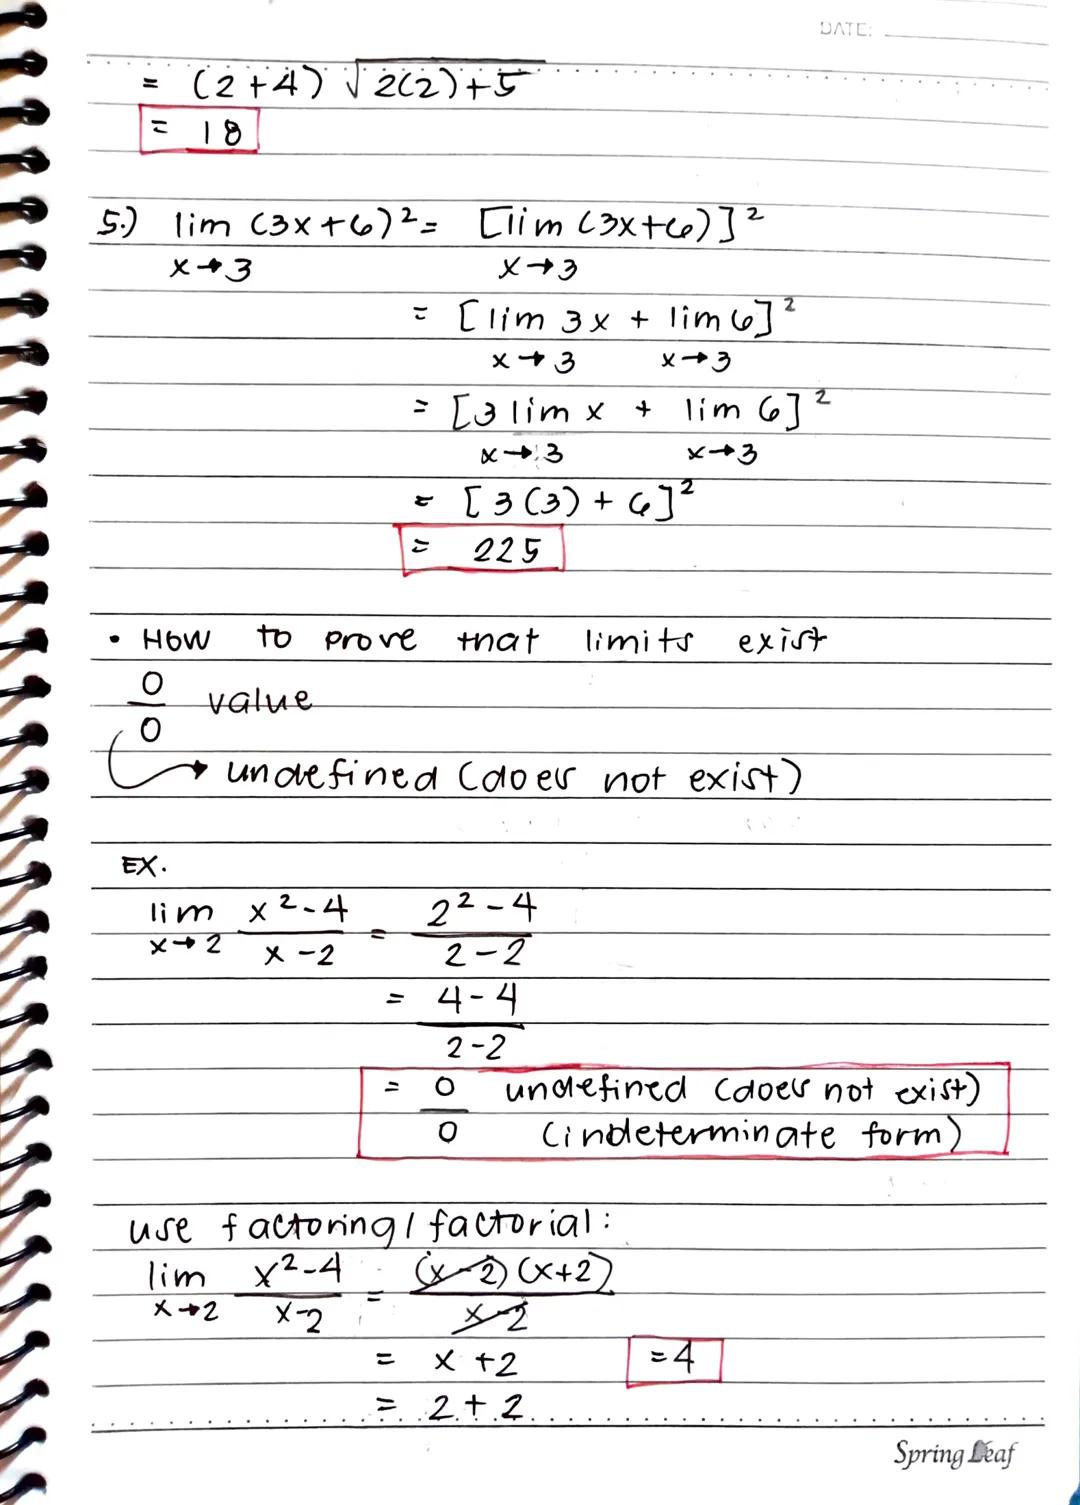 DATE:
= (2+4) √2(2)+5
= 18
5.) lim (3x+6)² = [lim (3x+6)]²
x→3 x→3
= [lim 3x + lim 6]²
x→3 x→3
= [3 lim x + lim 6]²
x→3 x→3
= [3(3) + 6]²
= 225
• How to prove that limits exist
0
― value
0
→ undefined (does not exist)
EX.
lim x²-4 = 2²-4
x→2 x-2 2-2
= 4-4
2-2
= 0 undefined (does not exist)
0 (indeterminate form)
use factoring/factorial:
lim x²-4 = (x-2)(x+2)
x→2 x-2 x-2
= x+2 =4
= 2+2
Spring Leaf